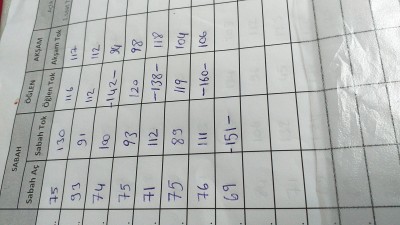 SABAH ÖĞLEN AKŞAM
Sabah Aç Sabah Tok Öğlen Tok Akşam Tok
75 130 116 117
93 91 112 112
74 100 -142- 94
75 93 120 98
71 112 -138- 118
75 89 119 104
76 111 -160- 106
69 -151-